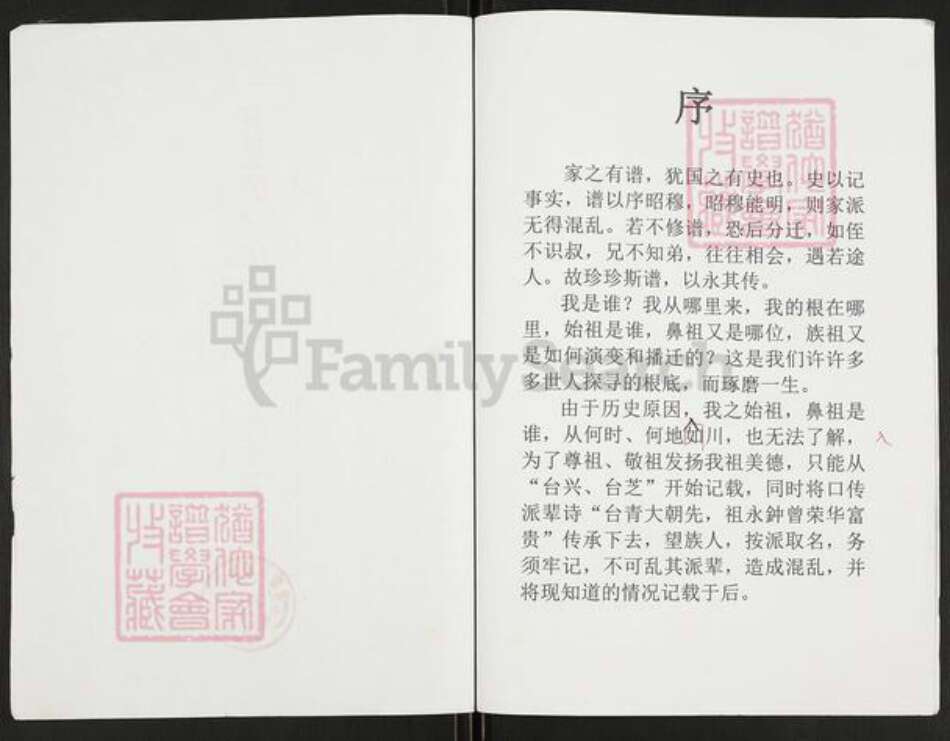 序
家之有谱，犹国之有史也。史以记
事实，谱以序昭穆，昭穆能明，则家派
无得混乱。若不修谱，恐后分迁，如侄
不识叔，兄不知弟，往往相会，遇若途
人。故珍珍斯谱，以永其传。
我是谁？我从哪里来，我的根在哪
里，始祖是谁，鼻祖又是哪位，族祖又
是如何演变和播迁的？这是我们许许多
多世人探寻的根底，而琢磨一生。
由于历史原因，我之始祖，鼻祖是
谁，从何时、何地如川，也无法了解，
入
入
为了尊祖、敬祖发扬我祖美德，只能从
“台兴、台芝”开始记载，同时将口传
派辈诗“台青大朝先，祖永鈡曾荣华富
贵”传承下去，望族人，按派取名，务
须牢记，不可乱其派辈，造成混乱，并
将现知道的情况记载于后。
FamilySearch